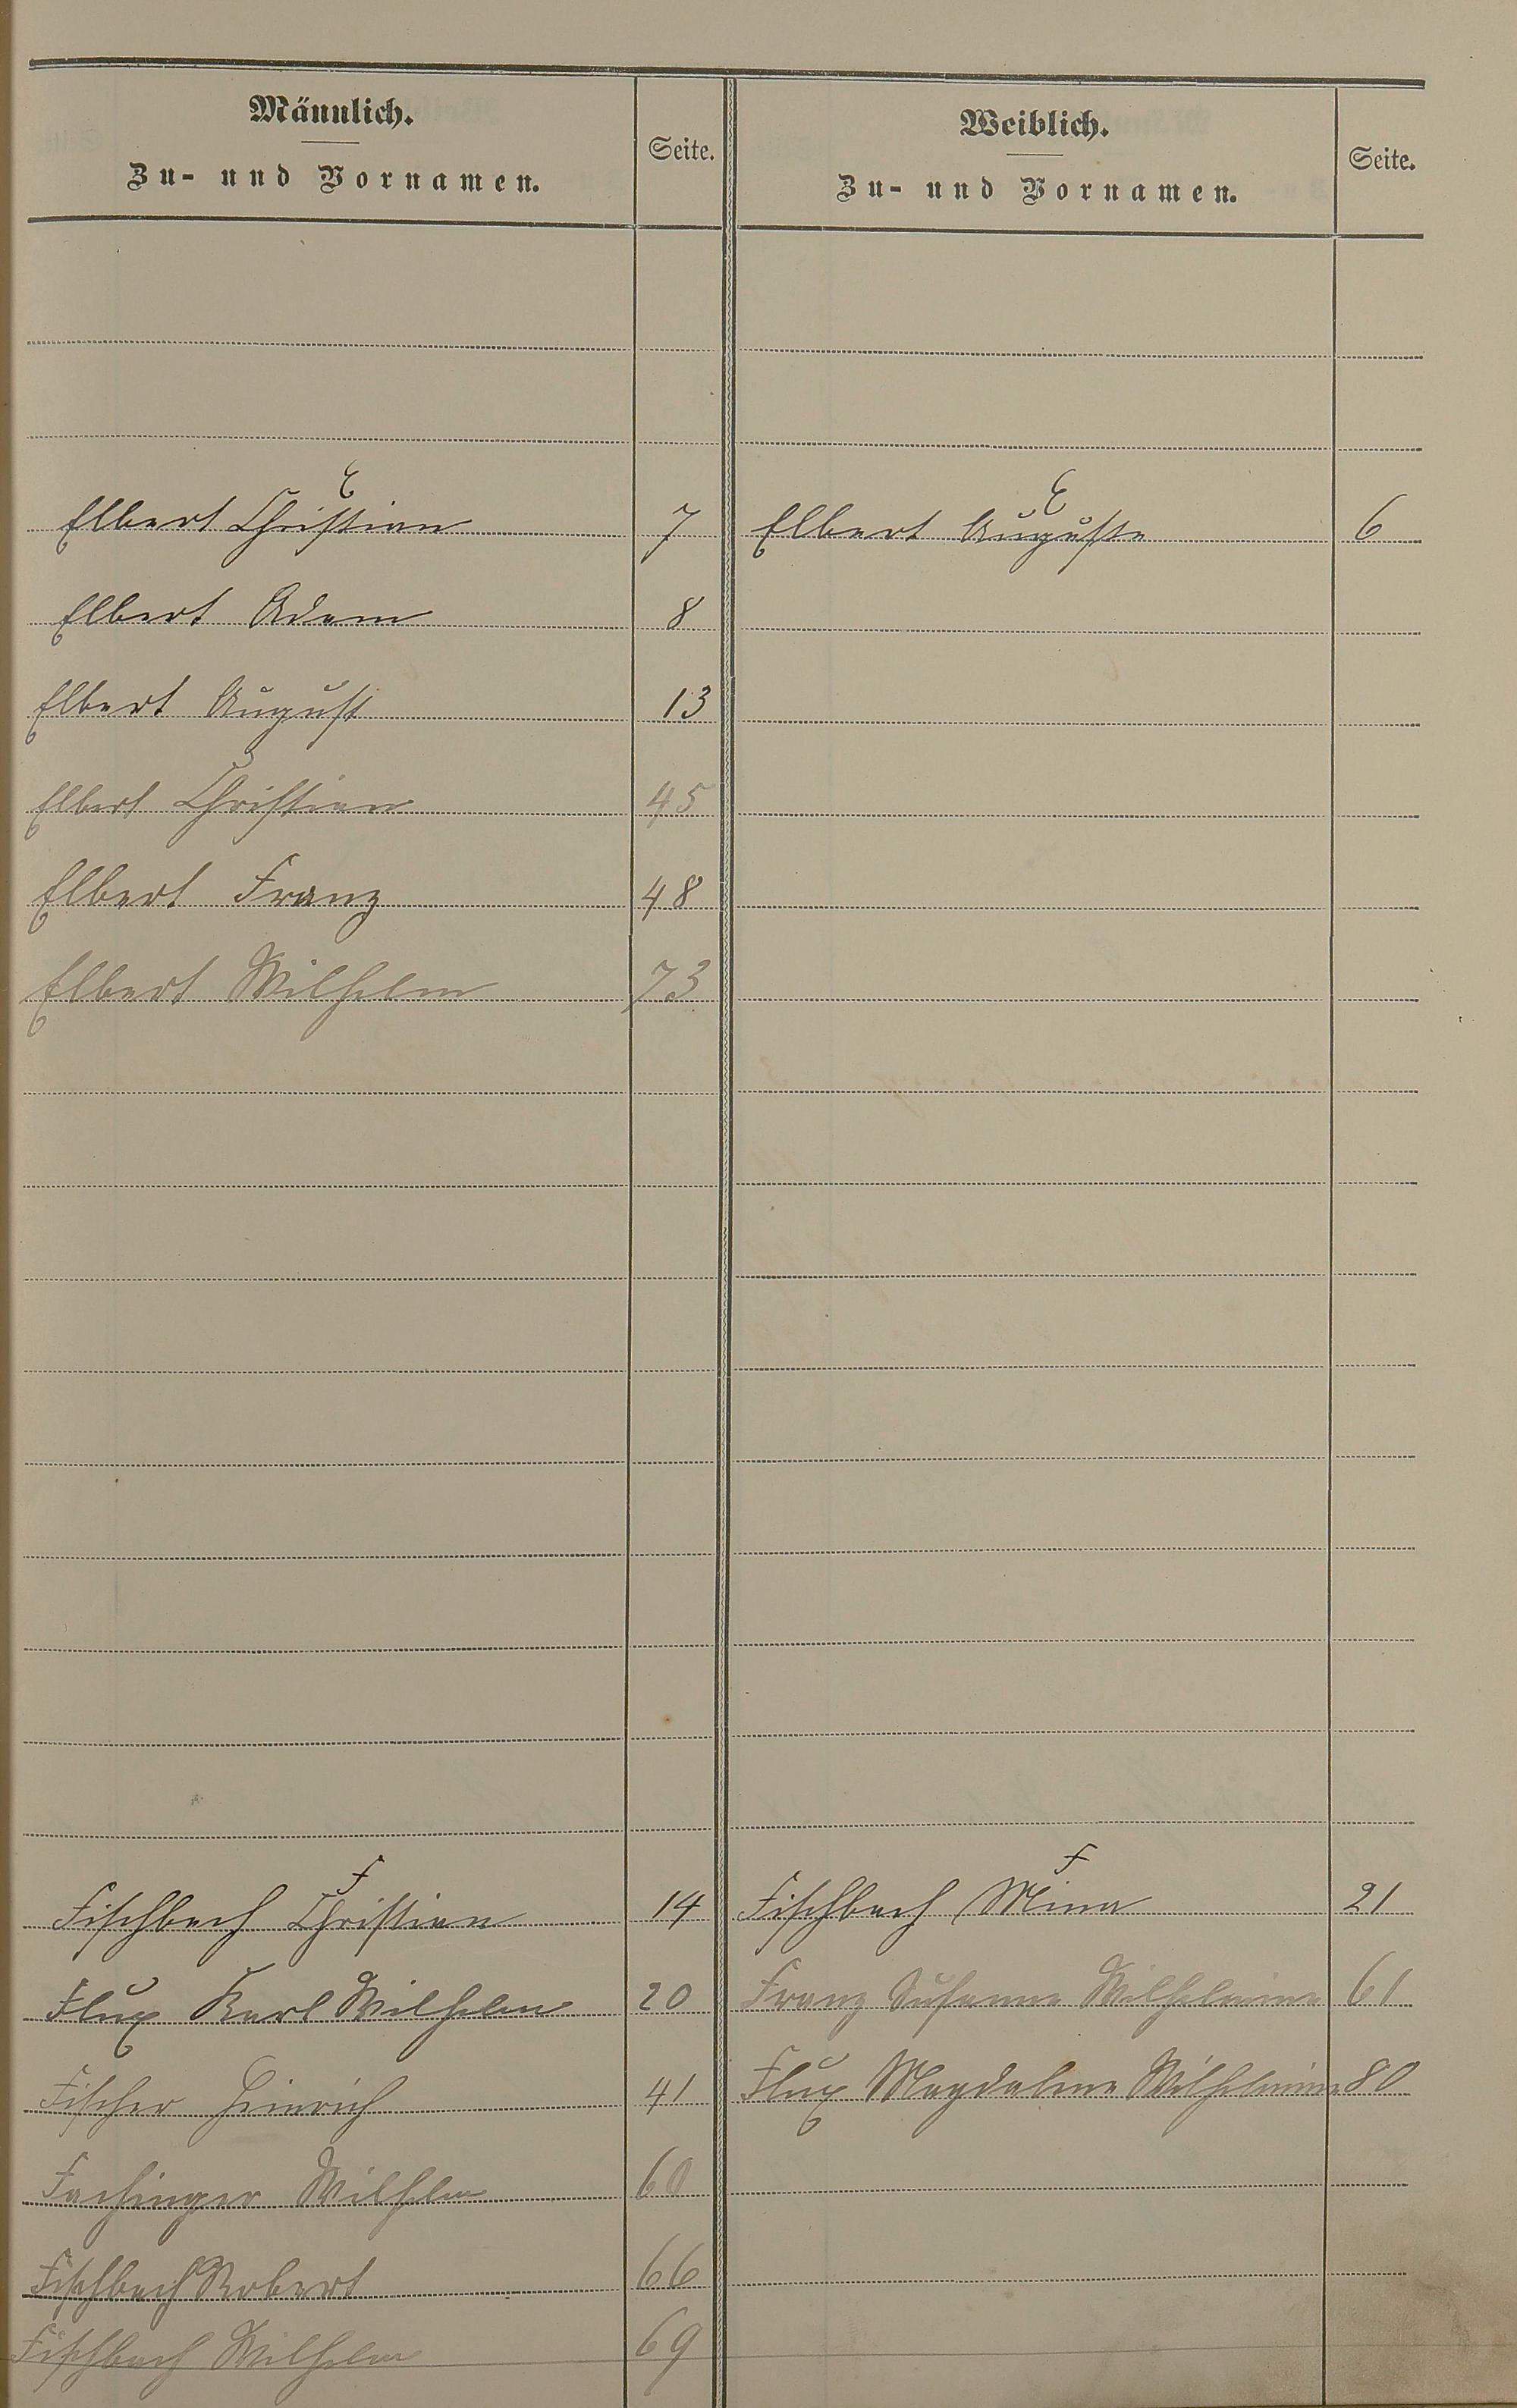 Männlich.
Zu- und Vornamen.
Seite.
Weiblich.
Zu- und Vornamen.
Seite.
E
E
Elbert Christian 7 Elbert Auguste 6
Elbert Adam 8
Elbert August 13
Elbert Christian 45
Elbert Franz 48
Elbert Wilhelm 73
F
F
Fischbach Christian 14 Fischbach Mina 21
Flux Karl Wilhelm 20 Franz Susanna Wilhelmine 61
Fischer Heinrich 41 Flux Magdalena Wilhelmine 80
Fachinger Wilhelm 60
Fischbach Robert 66
Fischbach Wilhelm 69